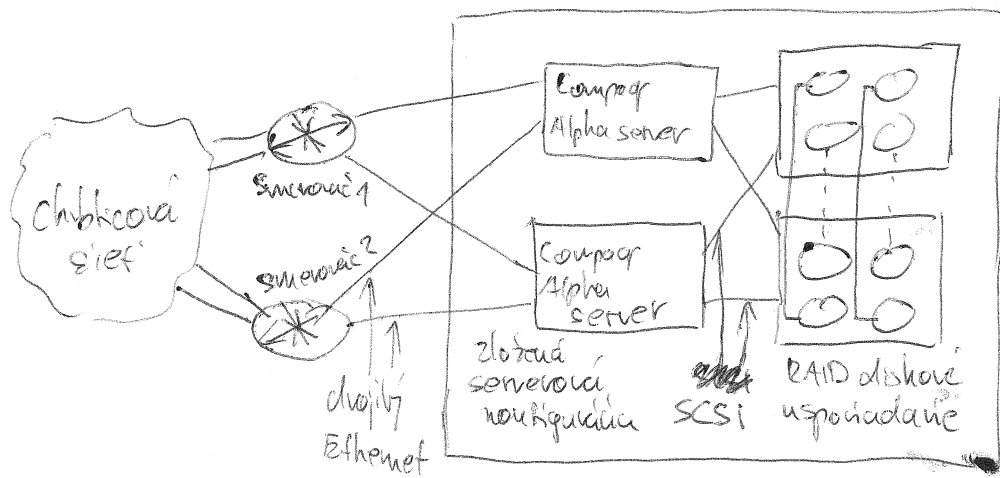 Chrbticová
sieť
smerovač 1
smerovač 2
dvojitý
Ethernet
Compaq
Alpha server
Compaq
Alpha
server
zložená
serverová
konfigurácia
SCSi
RAID diskové
usporiadanie